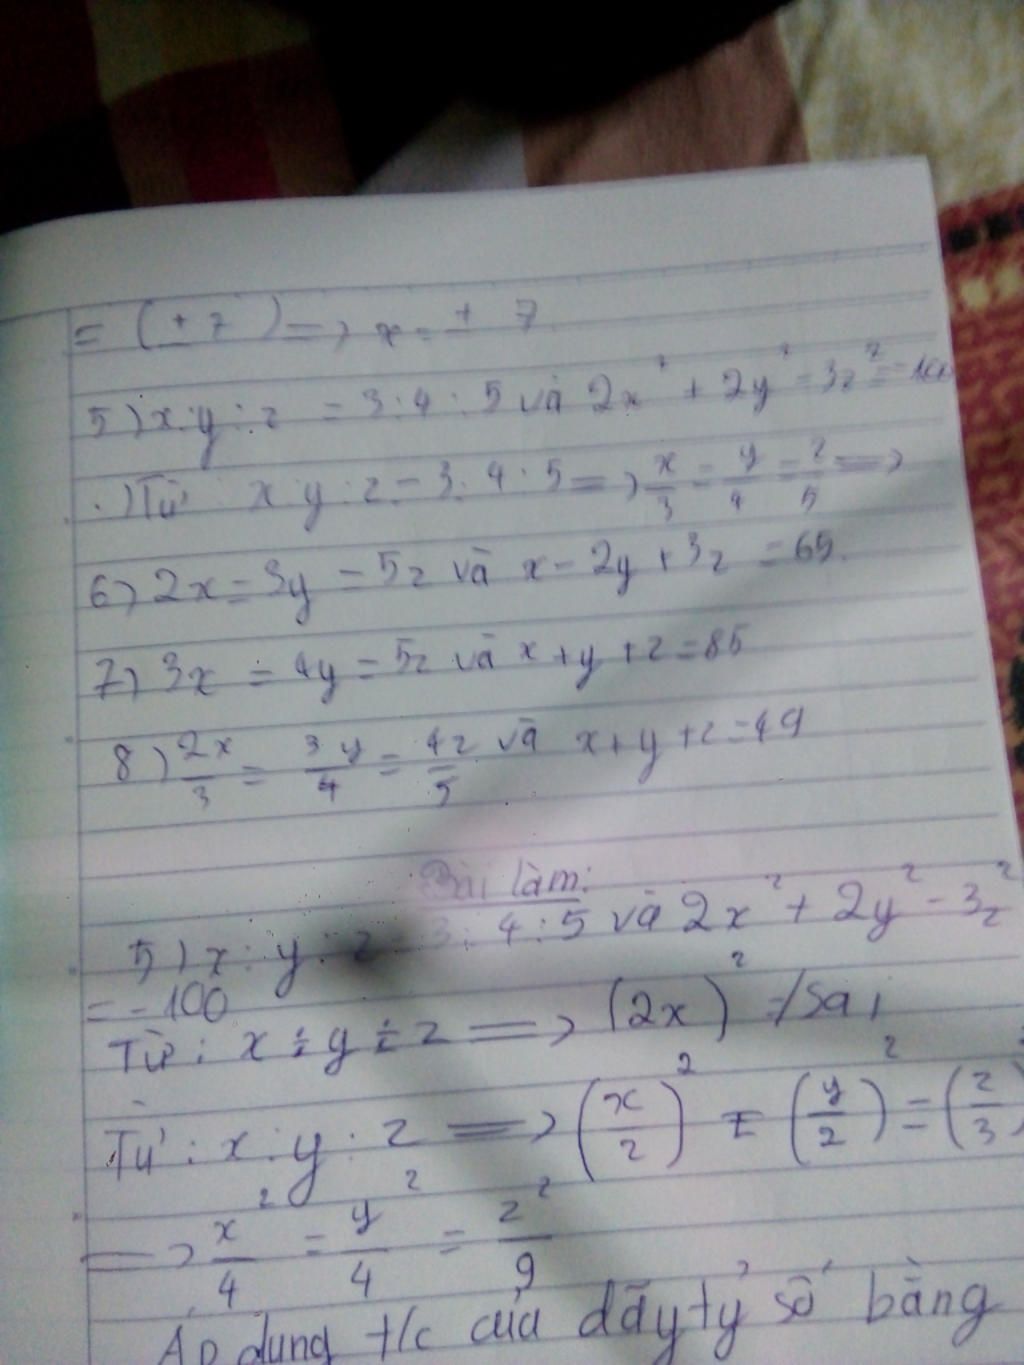 = (± 7) => x = ± 7
5) x : y : z = 3 : 4 : 5 và 2x² + 2y² - 3z² = -100
.) Từ : x : y : z = 3 : 4 : 5 => x/3 = y/4 = z/5 =>
6) 2x = 3y = 5z và x - 2y + 3z = 65.
7) 3x = 4y = 5z và x + y + z = 85
8) 2x/3 = 3y/4 = 4z/5 và x + y + z = 49
Bài làm:
5) x : y : z = 3 : 4 : 5 và 2x² + 2y² - 3z²
= -100
Từ : x ÷ y ÷ z => (2x)² = /Sai
Từ : x : y : z => (x/2)² = (y/2)² = (z/3)
=> x²/4 = y²/4 = z²/9
Áp dụng t/c của dãy tỷ số bằng